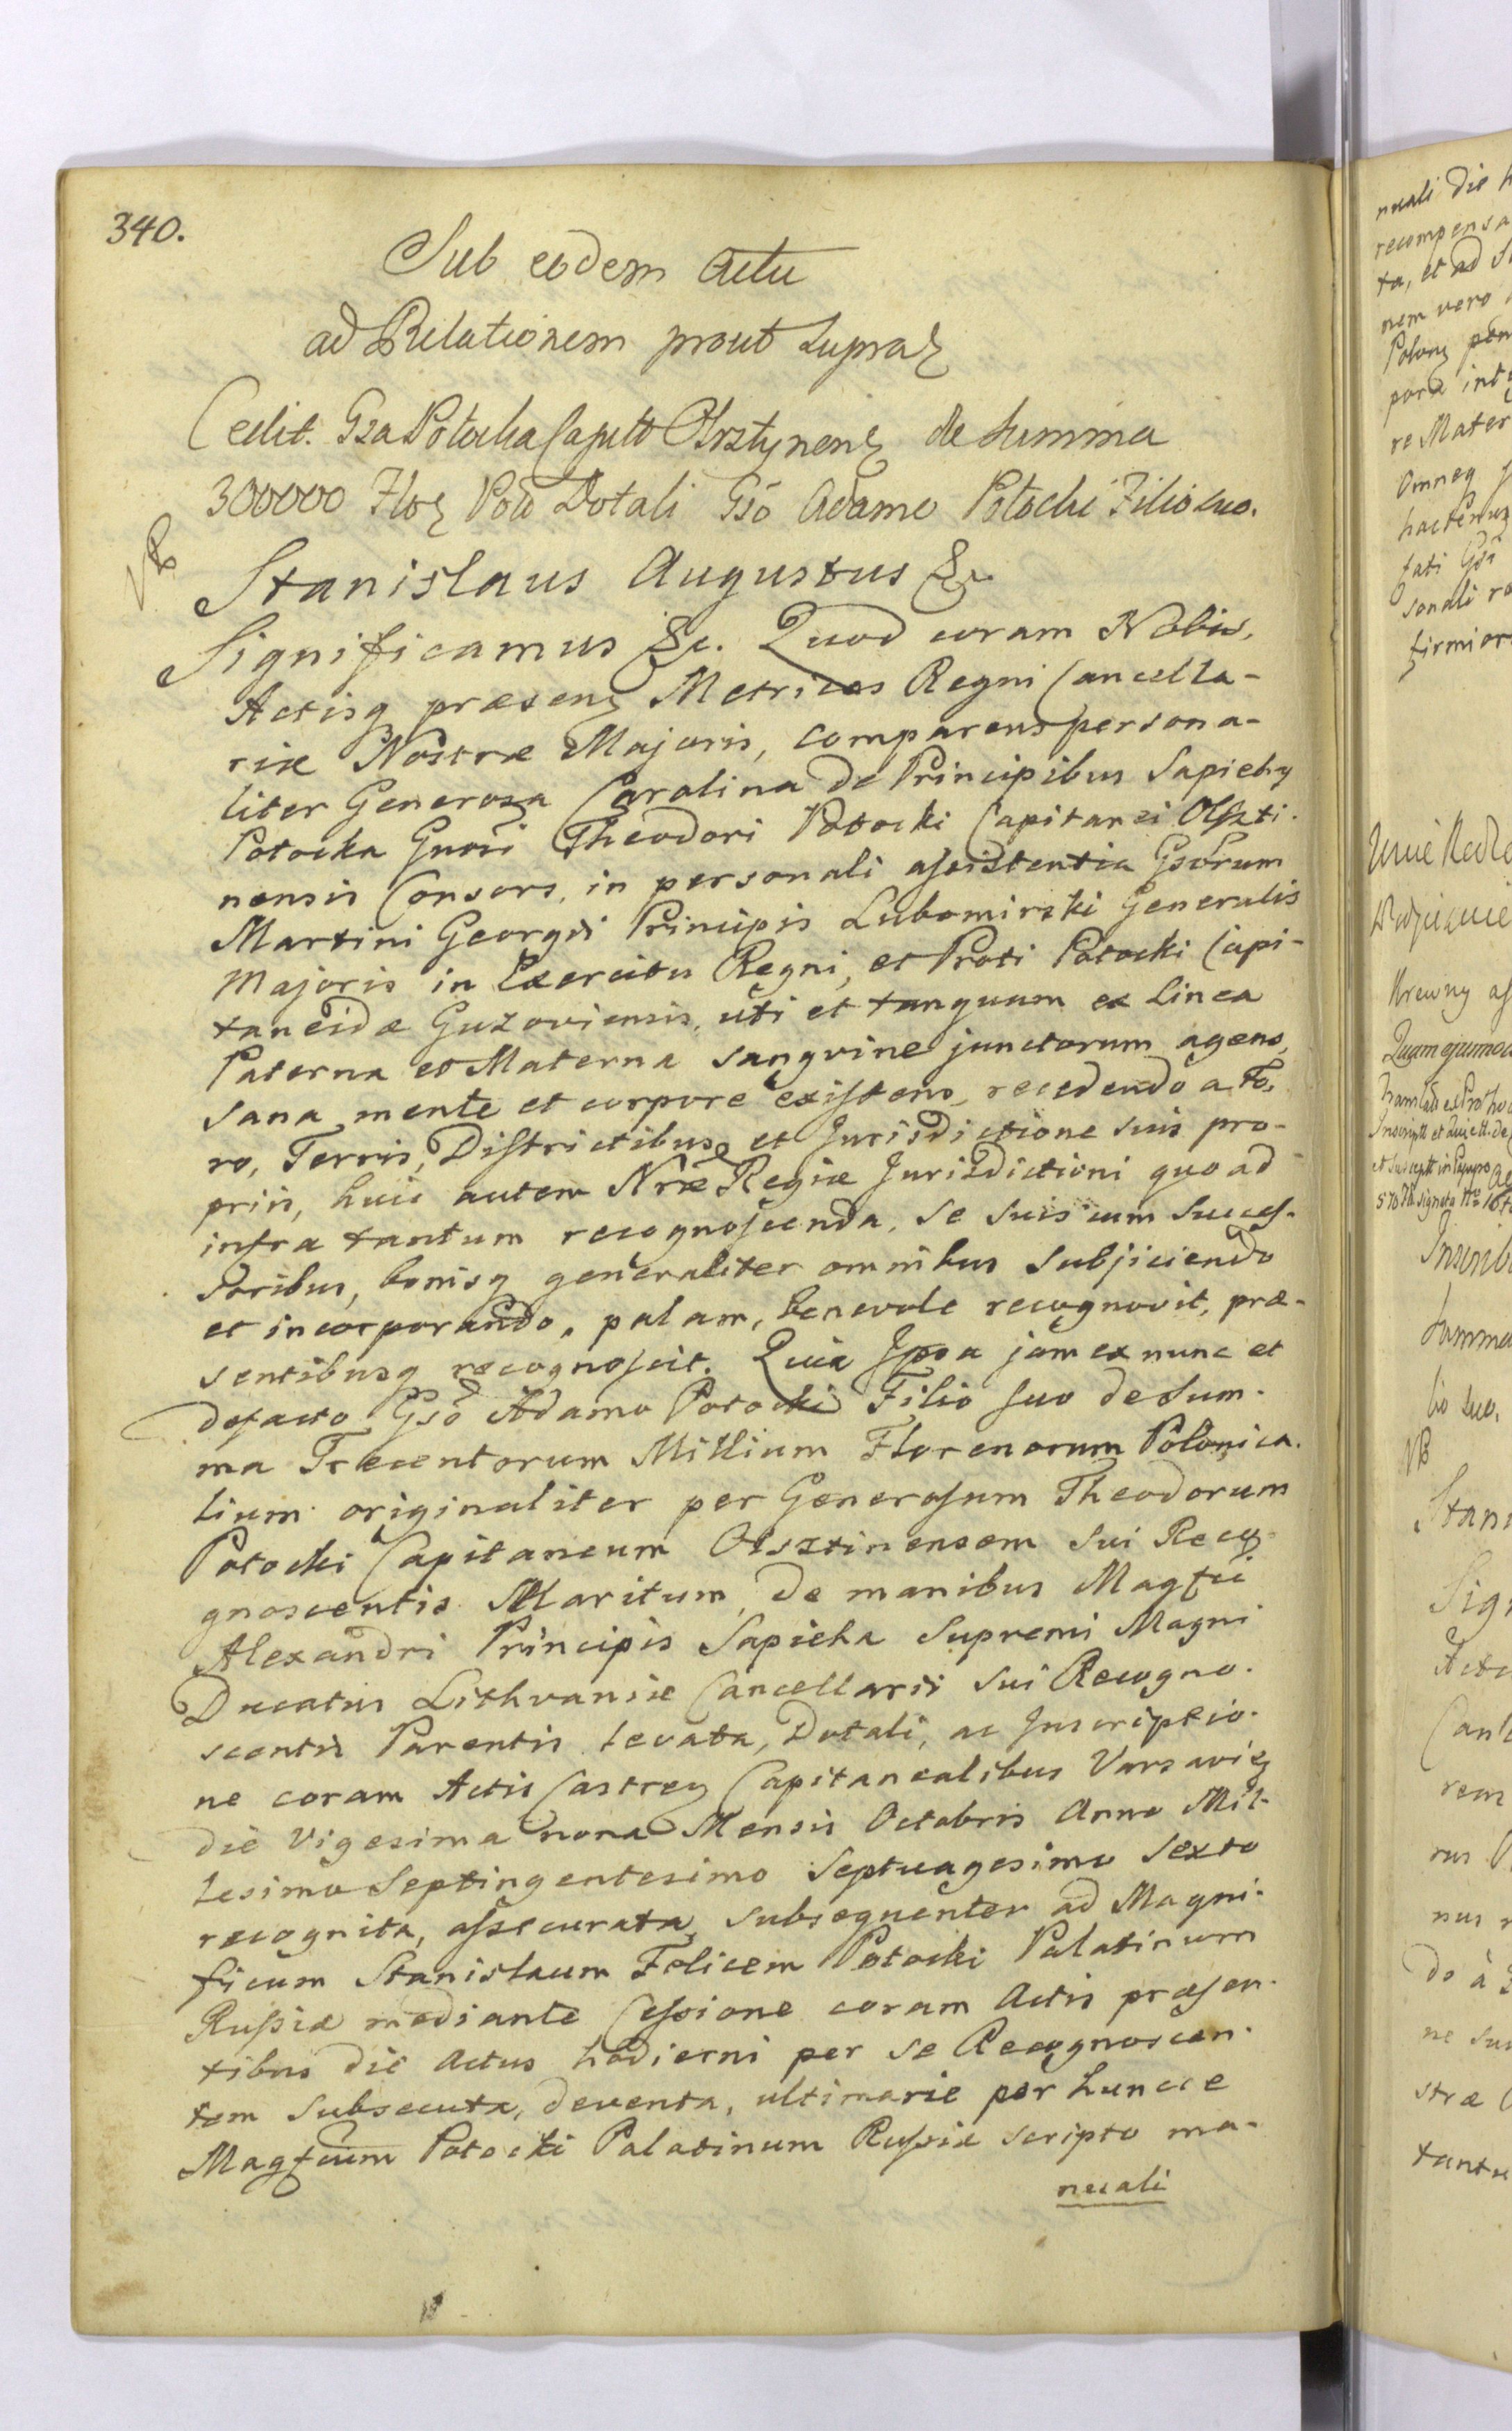 340.
Sub eodem Actu
ad Relationem prout supra
Cedit. Gsa Potocka Captt Olsztynens de Summa
300000 Flor Pol Dotali Gso Adamo Potocki Filio suo.
NB
Stanislaus Augustus &c.
Significamus &c. Quod coram Nobis,
Actisq præsens Metrices Regni Cancella-
riæ Nostræ Majoris, comparens persona-
liter Generosa Carolina de Principibus Sapiehy
Potocka Gnosi Theodori Potocki Capitanei Olszti-
nensis Consors, in personali assistentia Gsorum
Martini Georgii Principis Lubomirski Generalis
Majoris in Exercitu Regni, et Proti Potocki Capi-
taneidæ Guzoviensis, uti et tanquam ex Linea
Paterna et Materna sangvine junctorum agens,
sana mente et corpore existens, recedendo a Fo-
ro, Terris, Districtibusq et Jurisdictione suis pro-
priis, huic autem Nræ Regiæ Jurisdictioni quo ad
infra tantum recognoscenda, se suis cum Succes-
soribus, bonisq generaliter omnibus subjiciendo
et incorporando, palam, benevole recognovit, præ-
sentibusq recognoscit. Quia Ipsa jam ex nunc et
defacto Gso Adamo Potocki Filio suo de Sum-
ma Trecentorum Millium Florenorum Polonica-
lium originaliter per Generosum Theodorum
Potocki Capitaneum Olsztinensem sui Recog-
gnoscentis Maritum, de manibus Magfci
Alexandri Principis Sapieha Supremi Magni
Ducatus Lithvaniæ Cancellarii sui Recogno-
scentis Parentis levata, Dotali, ac Inscriptio-
ne coram Actis Castren Capitanealibus Varsavien
die Vigesima nona Mensis Octobris Anno Mil-
lesimo Septingentesimo Septuagesimo Sexto
recognita, assecurata, subsequenter ad Magni-
ficum Stanislaum Felicem Potocki Palatinum
Russiæ mediante Cessione coram Actis præsen-
tibus die Actus hodierni per se Recognoscen-
tem subsecuta, deventa, ultimarie per huncce
Magfcum Potocki Palatinum Russiæ scripto ma-
nuali
nuali die
recompensa
ta, et ad
nem vero
Polon
re Mater
hactenus
sonali
firmior
Krewny
Quam
Summa
lio suo.
NB
Stani
Sig
Acti
Can
rem
tantu